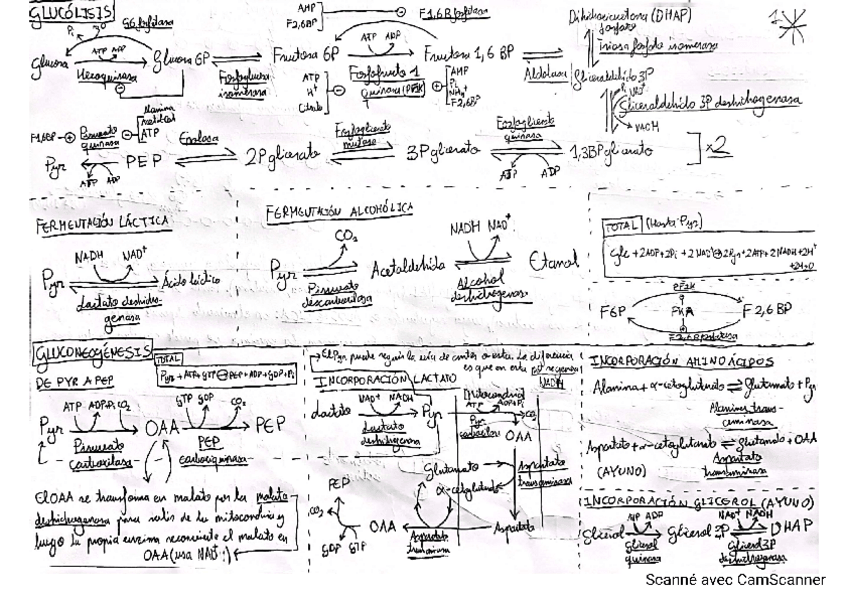 GLUCÓLISIS
G6 fosfatasa
Pi
Glucosa
ATP ADP
Hexoquinasa
Glucosa 6P
Fosfoglucosa
isomerasa
AMP
F2,6BP
F1,6B fosfatasa
Fructosa 6P
ATP ADP
Fosfofructo 1
quinasa (PFK)
ATP
H+
Citrato
Fructosa 1,6 BP
AMP
Pi
NH4+
F2,6BP
Aldolasa
Dihidroxicetona (DHAP)
fosfato
triosa fosfato isomerasa
Gliceraldehído 3P
Gliceraldehído 3P deshidrogenasa
1
F1,6BP
Piruvato
quinasa
Alanina
Acetil CoA
ATP
Pyr
ATP ADP
PEP
Enolasa
2P glicerato
Fosfoglicerato
mutasa
3P glicerato
Fosfoglicerato
quinasa
ATP ADP
1,3BP glicerato
x2
FERMENTACIÓN LÁCTICA
NADH NAD+
Pyr
Ácido láctico
Lactato deshidro-
genasa
FERMENTACIÓN ALCOHÓLICA
CO2
NADH NAD+
Pyr
Acetaldehído
Etanol
Piruvato
descarboxilasa
Alcohol
deshidrogenasa
TOTAL (Hasta Pyr)
Glc + 2ADP + 2Pi + 2NAD+ 2Pyr + 2ATP + 2NADH + 2H+
+ 2H2O
PF2K
F6P
PKA
F2,6 BP
F2,6B fosfatasa
GLUCONEOGÉNESIS
DE PYR A PEP
TOTAL
Pyr + ATP + GTP PEP + ADP + GDP + Pi
ATP ADP+Pi CO2
GTP GDP CO2
Pyr
OAA
PEP
Piruvato
carboxilasa
PEP
carboxiquinasa
El OAA se transforma en malato por la malato
deshidrogenasa para salir de la mitocondria y
luego la propia enzima reconvierte el malato en
OAA (usa NAD+)
El Pyr puede seguir la vía de antes o esta. La diferencia
es que en esta
NADH
INCORPORACIÓN LACTATO
Lactato
NAD+ NADH
Lactato
deshidrogenasa
Pyr
Mitocondria
ATP ADP+Pi
CO2
Pyr
carboxilasa
OAA
Glutamato
α-cetoglutarato
Aspartato
transaminasa
PEP
CO2
GDP GTP
OAA
Aspartato
transaminasa
Aspartato
INCORPORACIÓN AMINOÁCIDOS
Alanina + α-cetoglutarato Glutamato + Pyr
Alanina trans-
aminasa
Aspartato + α-cetoglutarato Glutamato + OAA
(AYUNO)
Aspartato
transaminasa
INCORPORACIÓN GLICEROL (AYUNO)
ATP ADP
NAD+ NADH
Glicerol
Glicerol 3P
DHAP
Glicerol
quinasa
Glicerol 3P
deshidrogenasa
Scanné avec CamScanner